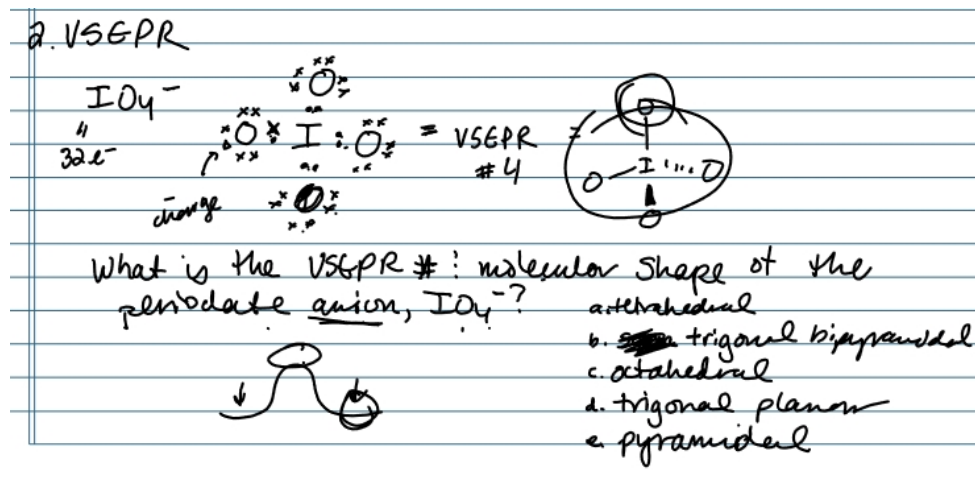 2. VSEPR
IO4-
32e-
O
O I O
O
change
= VSEPR
#4
=
O
O I O
O
What is the VSEPR # : molecular shape of the
periodate anion, IO4-?
a. tetrahedral
b. trigonal bipyramidal
c. octahedral
d. trigonal planar
e. pyramidal